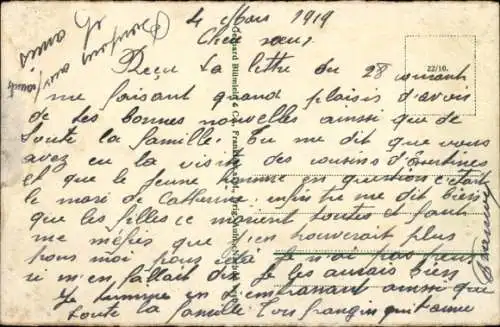 4 Mars 1919
Chère sœur
Reçu la lettre du 28 courant
me faisant grand plaisir d'avoir
de tes bonnes nouvelles ainsi que de
toute la famille. Tu me dit que vous
avez eu la visite des cousins
et que le jeune homme en question c'était
le mari de Catherine. me dit bien
que les filles ce marient toutes et faut
me méfié que j'en trouverait plus
pour moi pour cela je n'ai pas peur
si m'en fallait dix je les aurais bien
Je termine en t'embrassant ainsi que
toute la famille Ton frangin qui t'aime
22/10.
Gebhard Blümlein & Co., Frankfurt
Bonjour
et
aux amis